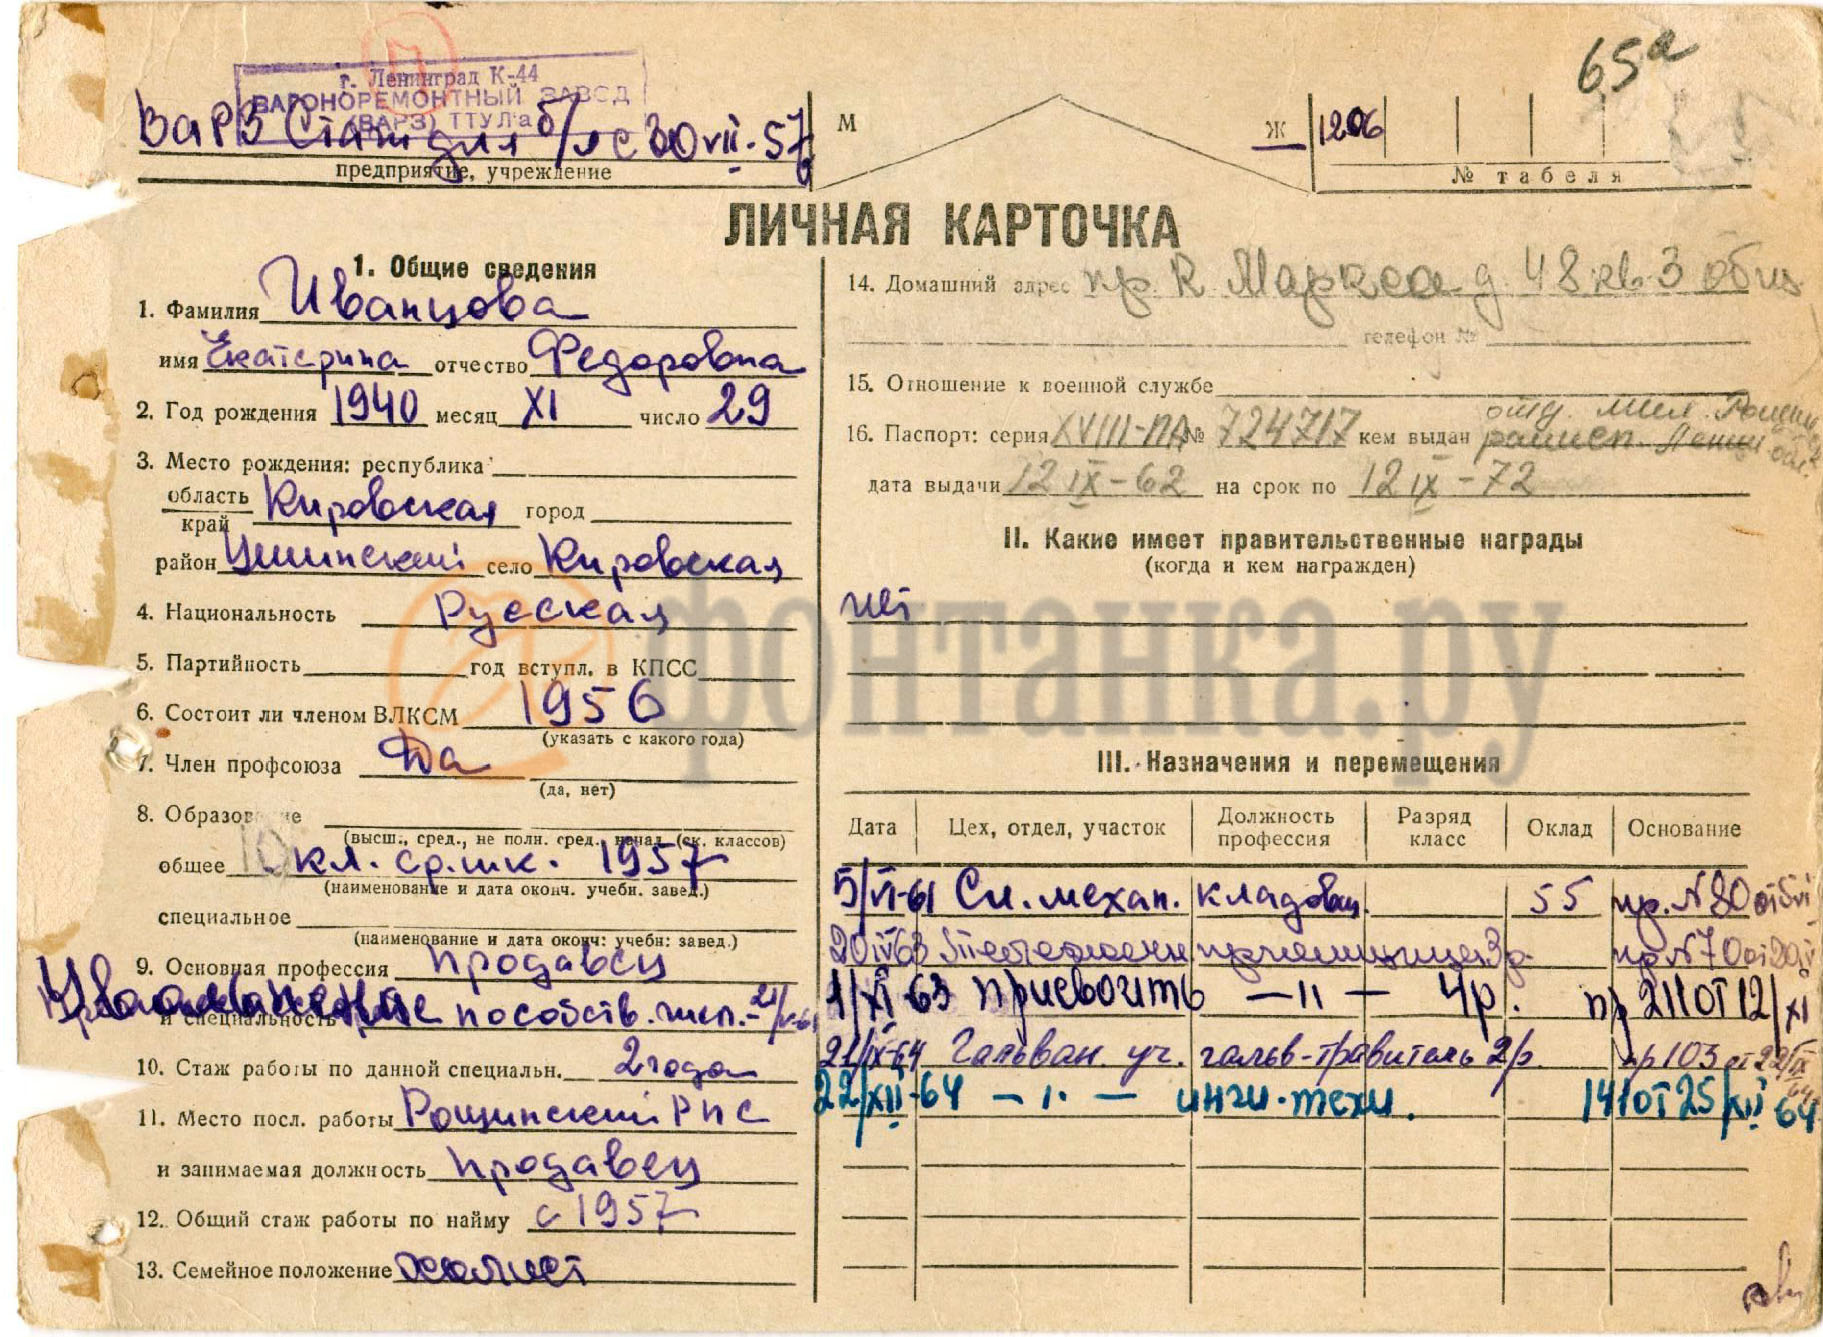 65а
г. Ленинград К-44
ВАГОНОРЕМОНТНЫЙ ЗАВОД
(ВАРЗ) ТТУЛа
ВаРЗ Стаж для б/л с 30 VII-57
предприятие, учреждение
М
Ж 1206
№ табеля
ЛИЧНАЯ КАРТОЧКА
1. Общие сведения
1. Фамилия Иванцова
имя Екатерина отчество Федоровна
2. Год рождения 1940 месяц XI число 29
3. Место рождения: республика
область Кировская город
край
район село Кировская
4. Национальность Русская
5. Партийность год вступл. в КПСС
6. Состоит ли членом ВЛКСМ 1956
(указать с какого года)
7. Член профсоюза Да
(да, нет)
8. Образование
(высш., сред., не полн. сред., начал. (ск. классов)
общее 10 кл. ср. шк. 1957
(наименование и дата оконч. учебн. завед.)
специальное
(наименование и дата оконч: учебн: завед.)
9. Основная профессия продавец
и специальность
10. Стаж работы по данной специальн. 2 года
11. Место посл. работы Рощинский РПС
и занимаемая должность продавец
12. Общий стаж работы по найму с 1957
13. Семейное положение холост
14. Домашний адрес пр. К Маркса д 48 кв. 3 общ
телефон №
15. Отношение к военной службе
16. Паспорт: серия XVIII-ПА № 724717 кем выдан отд. мил.
дата выдачи 12 IX-62 на срок по 12 IX-72
II. Какие имеет правительственные награды
(когда и кем награжден)
нет
III. Назначения и перемещения
Дата Цех, отдел, участок Должность профессия Разряд класс Оклад Основание
5/VI-61 Сл. механ. кладовщ. 55 пр. N 80 от 5/VI
20 IV 63 3 р. пр N 70 от 20/IV
1/XI 63 присвоить — 11 — 4р. пр 211 от 12/XI
21/IX-64 Гальван. уч. гальв-травитель 2/р. пр 103 от 22/IX 64
22/XII-64 — 1. — инж. техн. 141 от 25/XII 64
фонтанка.ру